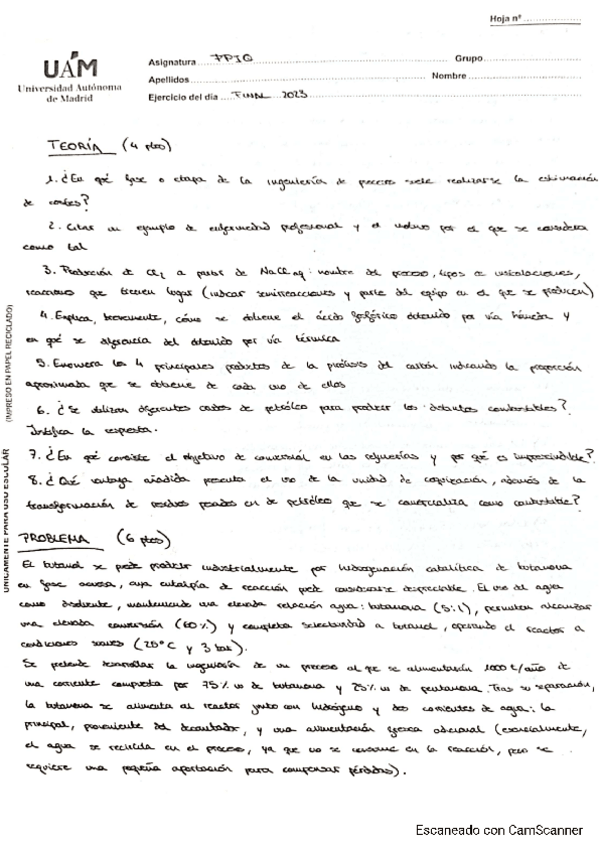 Hoja nº
UAM
Universidad Autónoma
de Madrid
Asignatura PPIQ Grupo
Apellidos Nombre
Ejercicio del día FINAL 2023
TEORÍA (4 ptos)
1. ¿En qué fase o etapa de la ingeniería de procesos suele realizarse la estimación
de costes?
2. Citar un ejemplo de enfermedad profesional y el motivo por el que se considera
como tal
3. Producción de Cl2 a partir de NaCl aq: nombre del proceso, tipos de instalaciones,
reacciones que tienen lugar (indicar semirreacciones y parte del equipo en el que se producen)
4. Explica, brevemente, cómo se obtiene el ácido fosfórico obtenido por vía húmeda y
en qué se diferencia del obtenido por vía térmica
5. Enumera los 4 principales productos de la pirólisis del carbón indicando la proporción
aproximada que se obtiene de cada uno de ellos
6. ¿Se utilizan diferentes cortes de petróleo para producir los distintos combustibles?
Justifica la respuesta.
7. ¿En qué consiste el objetivo de conversión en las refinerías y por qué es imprescindible?
8. ¿Qué ventaja añadida presenta el uso de la unidad de coquización, además de la
transformación de residuos pesados en de petróleo que se comercializa como combustible?
PROBLEMA (6 ptos)
El butanol se puede producir industrialmente por hidrogenación catalítica de butanona
en fase acuosa, cuya entalpía de reacción puede considerarse despreciable. El uso del agua
como disolvente, manteniendo una elevada relación agua:butanona (5:1), permiten alcanzar
una elevada conversión (60%) y completa selectividad a butanol, operando el reactor a
condiciones suaves (25°C y 3 bar).
Se pretende desarrollar la ingeniería de un proceso al que se alimentarán 1000 t/año de
una corriente compuesta por 75% de butanona y 25% de pentanona. Tras su separación,
la butanona se alimenta al reactor junto con hidrógeno y dos corrientes de agua: la
principal, proveniente del decantador, y una alimentación fresca adicional (esencialmente,
el agua se recircula en el proceso, ya que no se consume en la reacción, pero se
requiere una pequeña aportación para compensar pérdidas).
(IMPRESO EN PAPEL RECICLADO)
UNICAMENTE PARA USO ESCOLAR
Escaneado con CamScanner